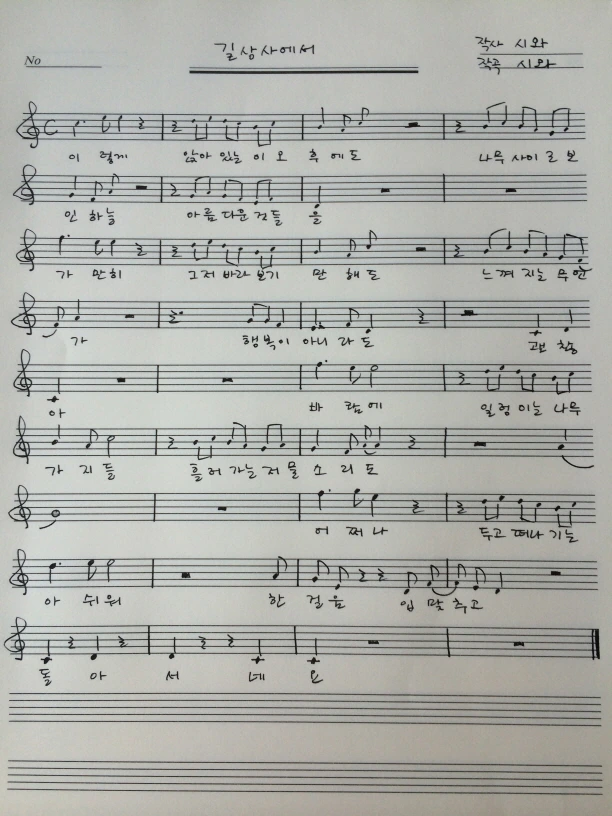 길상사에서
작사 시와
작곡 시와
No
이 렇게 앉아 있는 이 오 후 에도 나무 사이 로 보
인 하늘 아름 다운 것들 을
가 만히 그저 바라 보기 만 해도 느껴 지는 무언
가 행복이 아니 라도 괜 찮
아 바 람에 일렁 이는 나무
가 지들 흘러 가는 저 물 소 리도
어 쩌 나 두고 떠나 기는
아 쉬워 한 걸음 입 맞 추고
돌 아 서 네 요